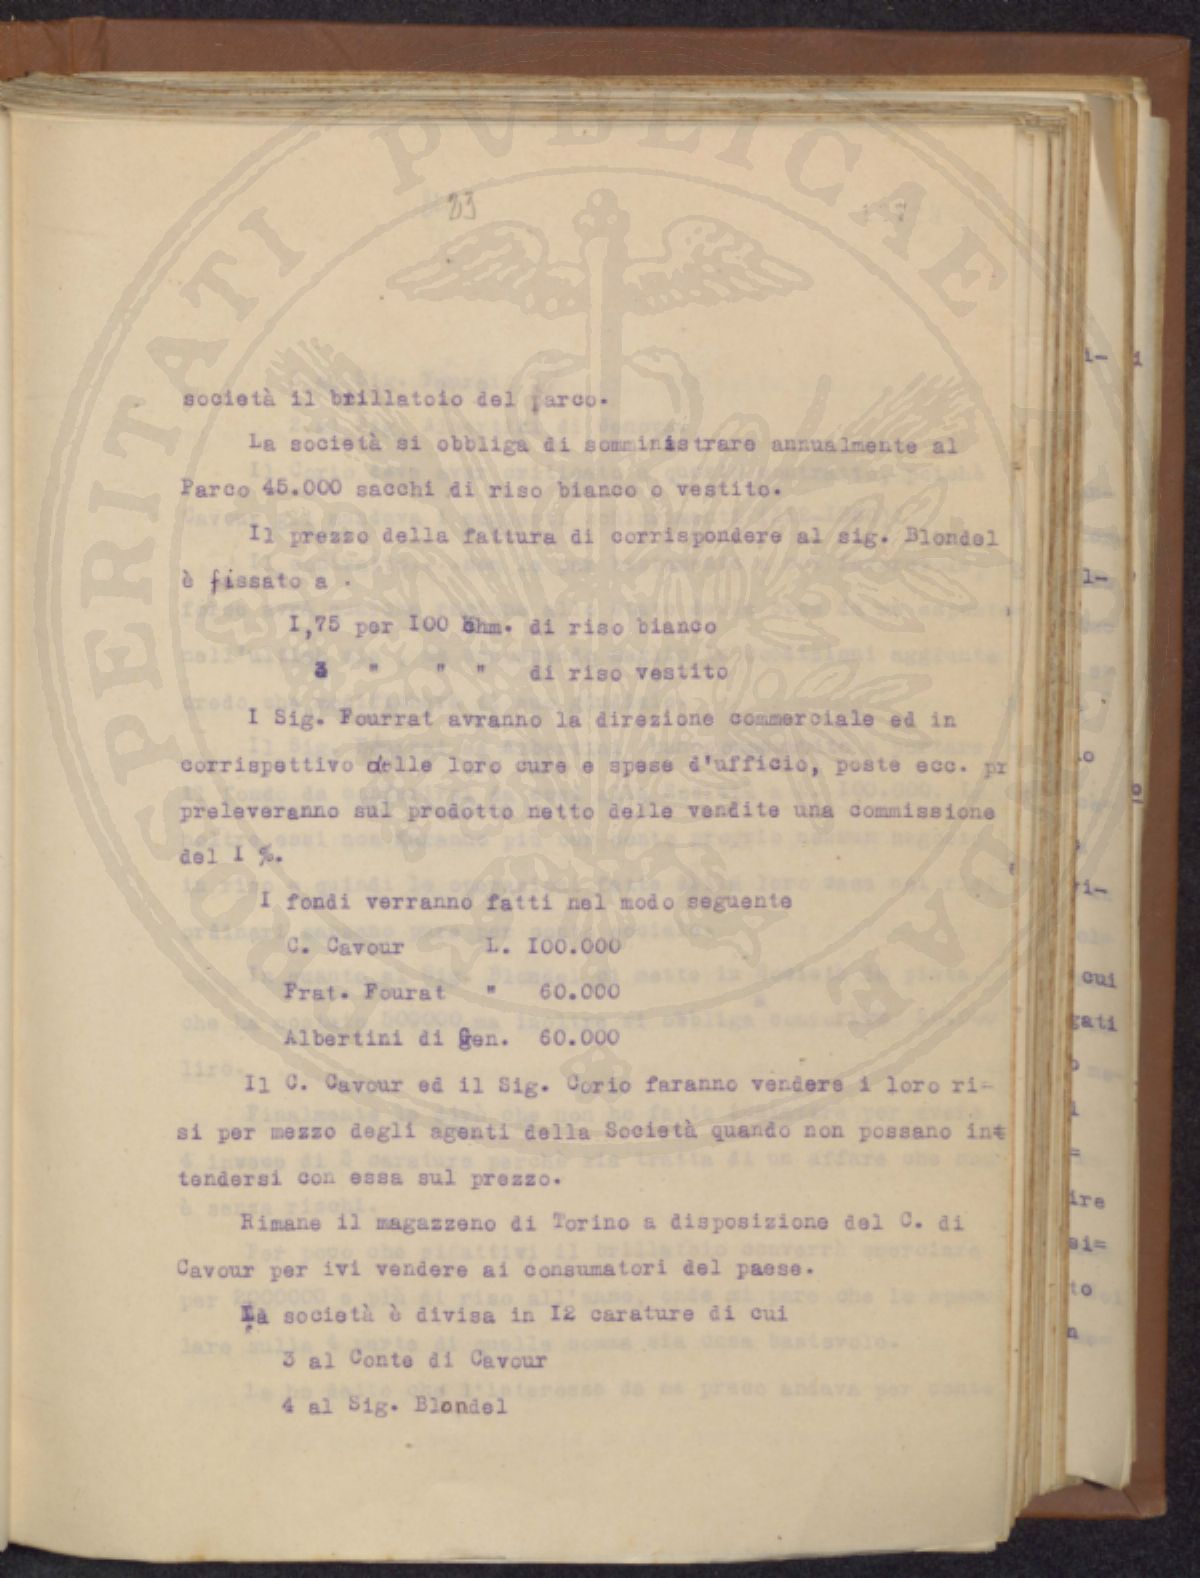 PROSPERITATI PUBLICAE AUGENDAE
23
società il brillatoio del parco.
La società si obbliga di somministrare annualmente al
Parco 45.000 sacchi di riso bianco o vestito.
Il prezzo della fattura di corrispondere al sig. Blondel
è fissato a .
I,75 per I00 Chm. di riso bianco
3 " " " di riso vestito
I Sig. Fourrat avranno la direzione commerciale ed in
corrispettivo delle loro cure e spese d'ufficio, poste ecc. pr
preleveranno sul prodotto netto delle vendite una commissione
del I %.
I fondi verranno fatti nel modo seguente
C. Cavour L. I00.000
Frat. Fourat " 60.000
Albertini di Gen. 60.000
Il C. Cavour ed il Sig. Corio faranno vendere i loro ri=
si per mezzo degli agenti della Società quando non possano int
tendersi con essa sul prezzo.
Rimane il magazzeno di Torino a disposizione del C. di
Cavour per ivi vendere ai consumatori del paese.
La società è divisa in I2 carature di cui
3 al Conte di Cavour
4 al Sig. Blondel